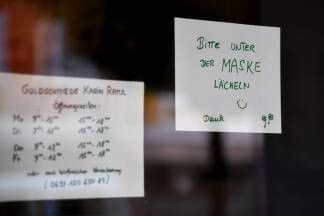 GOLDSCHMIEDE KARIN RAMZ
Öffnungszeiten:
Mo 9⁰⁰-12⁰⁰ 15⁰⁰-18⁰⁰
Di 9⁰⁰-12⁰⁰ 15⁰⁰-18⁰⁰
Do 9⁰⁰-12⁰⁰ 15⁰⁰-18⁰⁰
Fr 9⁰⁰-12⁰⁰ 15⁰⁰-18⁰⁰
oder nach telefonischer Vereinbarung
BITTE UNTER
DER MASKE
LÄCHELN
Dank